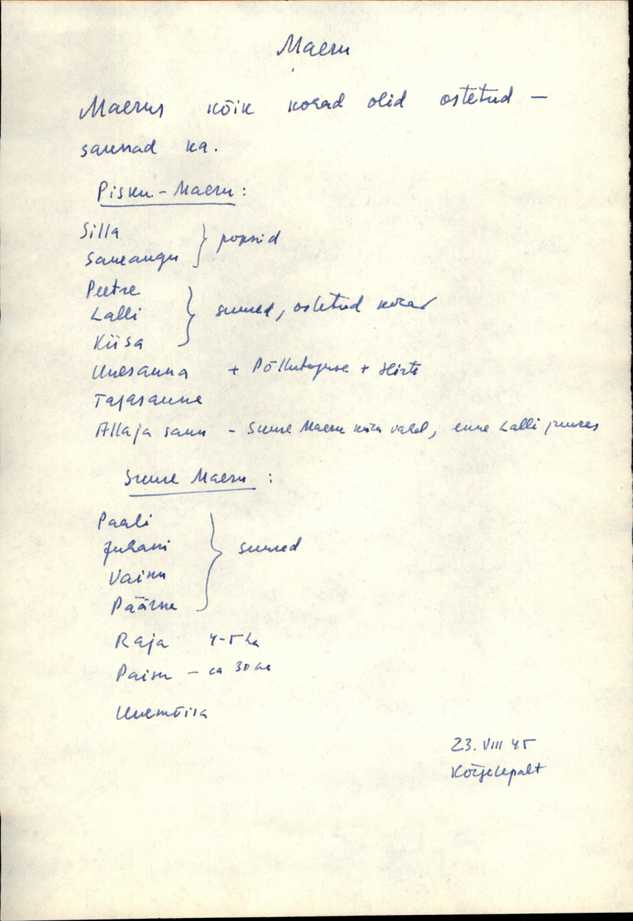 Maeru
Maerus kõik kohad olid ostetud –
saunad ka.
Pisku-Maeru:
Silla
Saueaugu } popsid
Peetre
Lalli } suured, ostetud kohad
Kiisa
Uuesauna +
Tagasauna
Allaja saun – Suure Maeru küla vahel, enne Lalli juures
Suure Maeru:
Paali
Juhani } suured
Vainu
Päärna
Raja 4-5 ha
Paisu – ca 30 ha
Uuemõisa
23. VIII 45